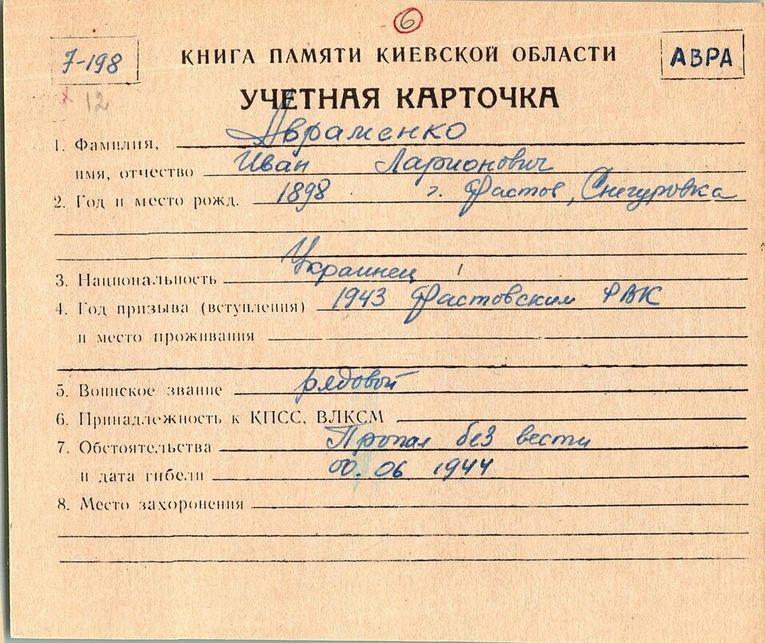 6
7-198
КНИГА ПАМЯТИ КИЕВСКОЙ ОБЛАСТИ
АВРА
12
УЧЕТНАЯ КАРТОЧКА
1. Фамилия, Авраменко
имя, отчество Иван Ларионович
2. Год и место рожд. 1898 г. Фастов, Снегуровка
3. Национальность Украинец
4. Год призыва (вступления) 1943 Фастовским РВК
и место проживания
5. Воинское звание рядовой
6. Принадлежность к КПСС, ВЛКСМ
7. Обстоятельства Пропал без вести
и дата гибели 00.06 1944
8. Место захоронения